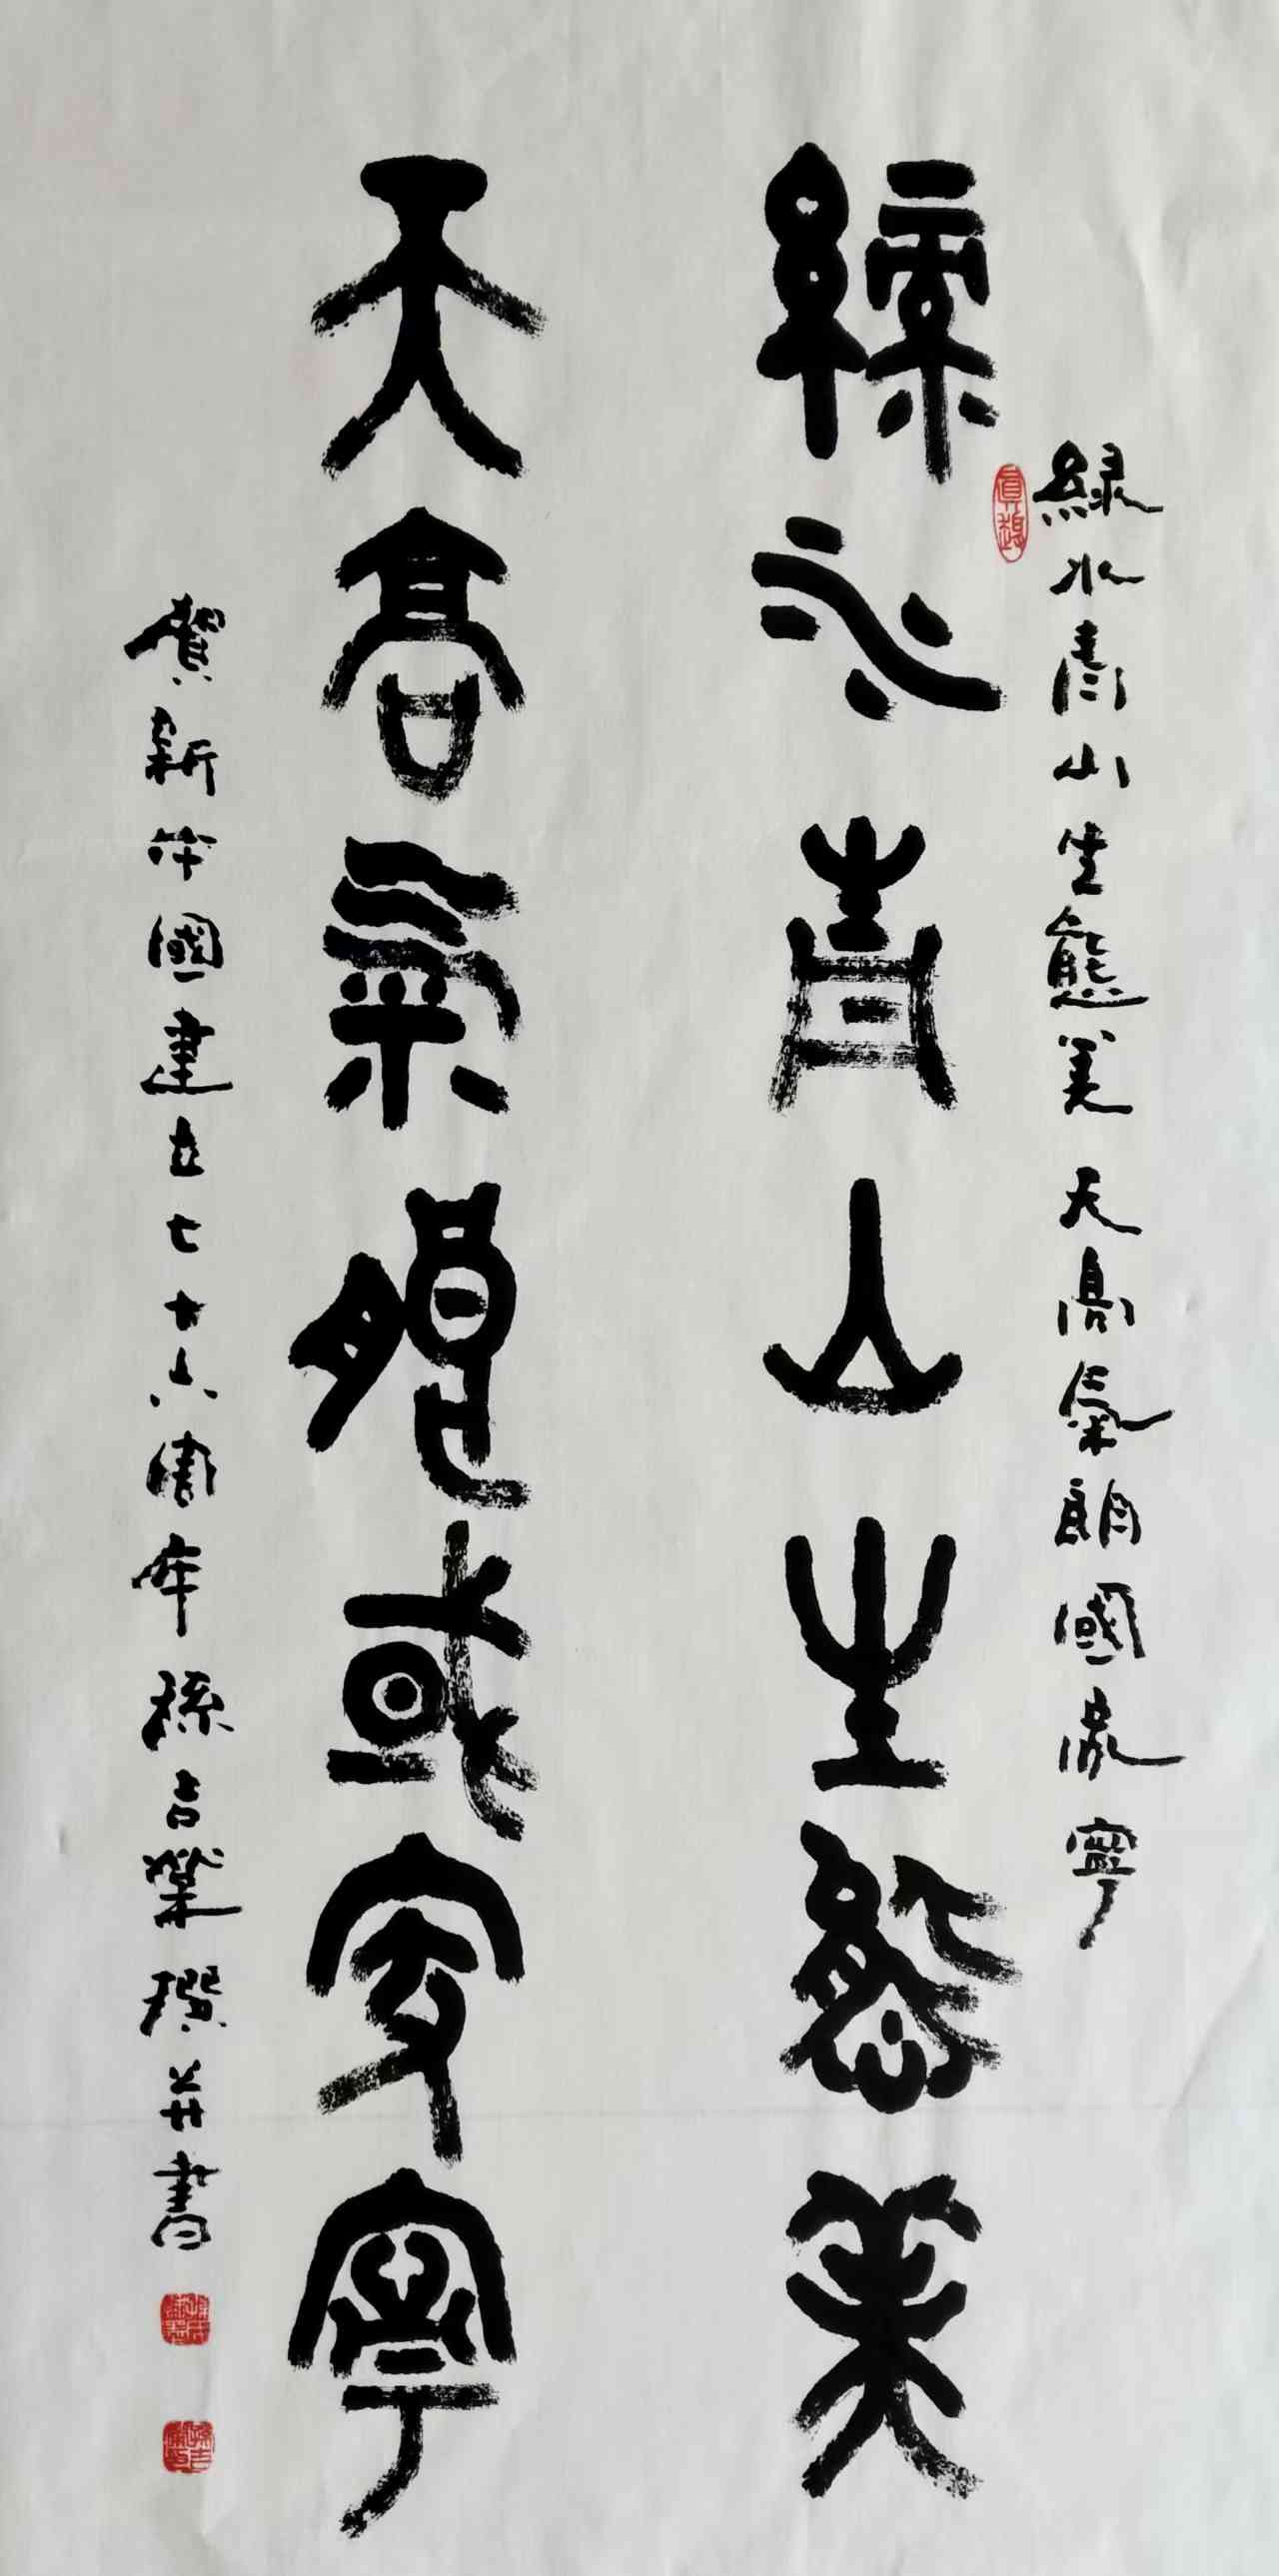 綠水青山生態美天高氣朗國家寧
真趣
綠水青山生態美
天高氣朗或家寧
賀新中國建立七十六周年孫占業撰並書